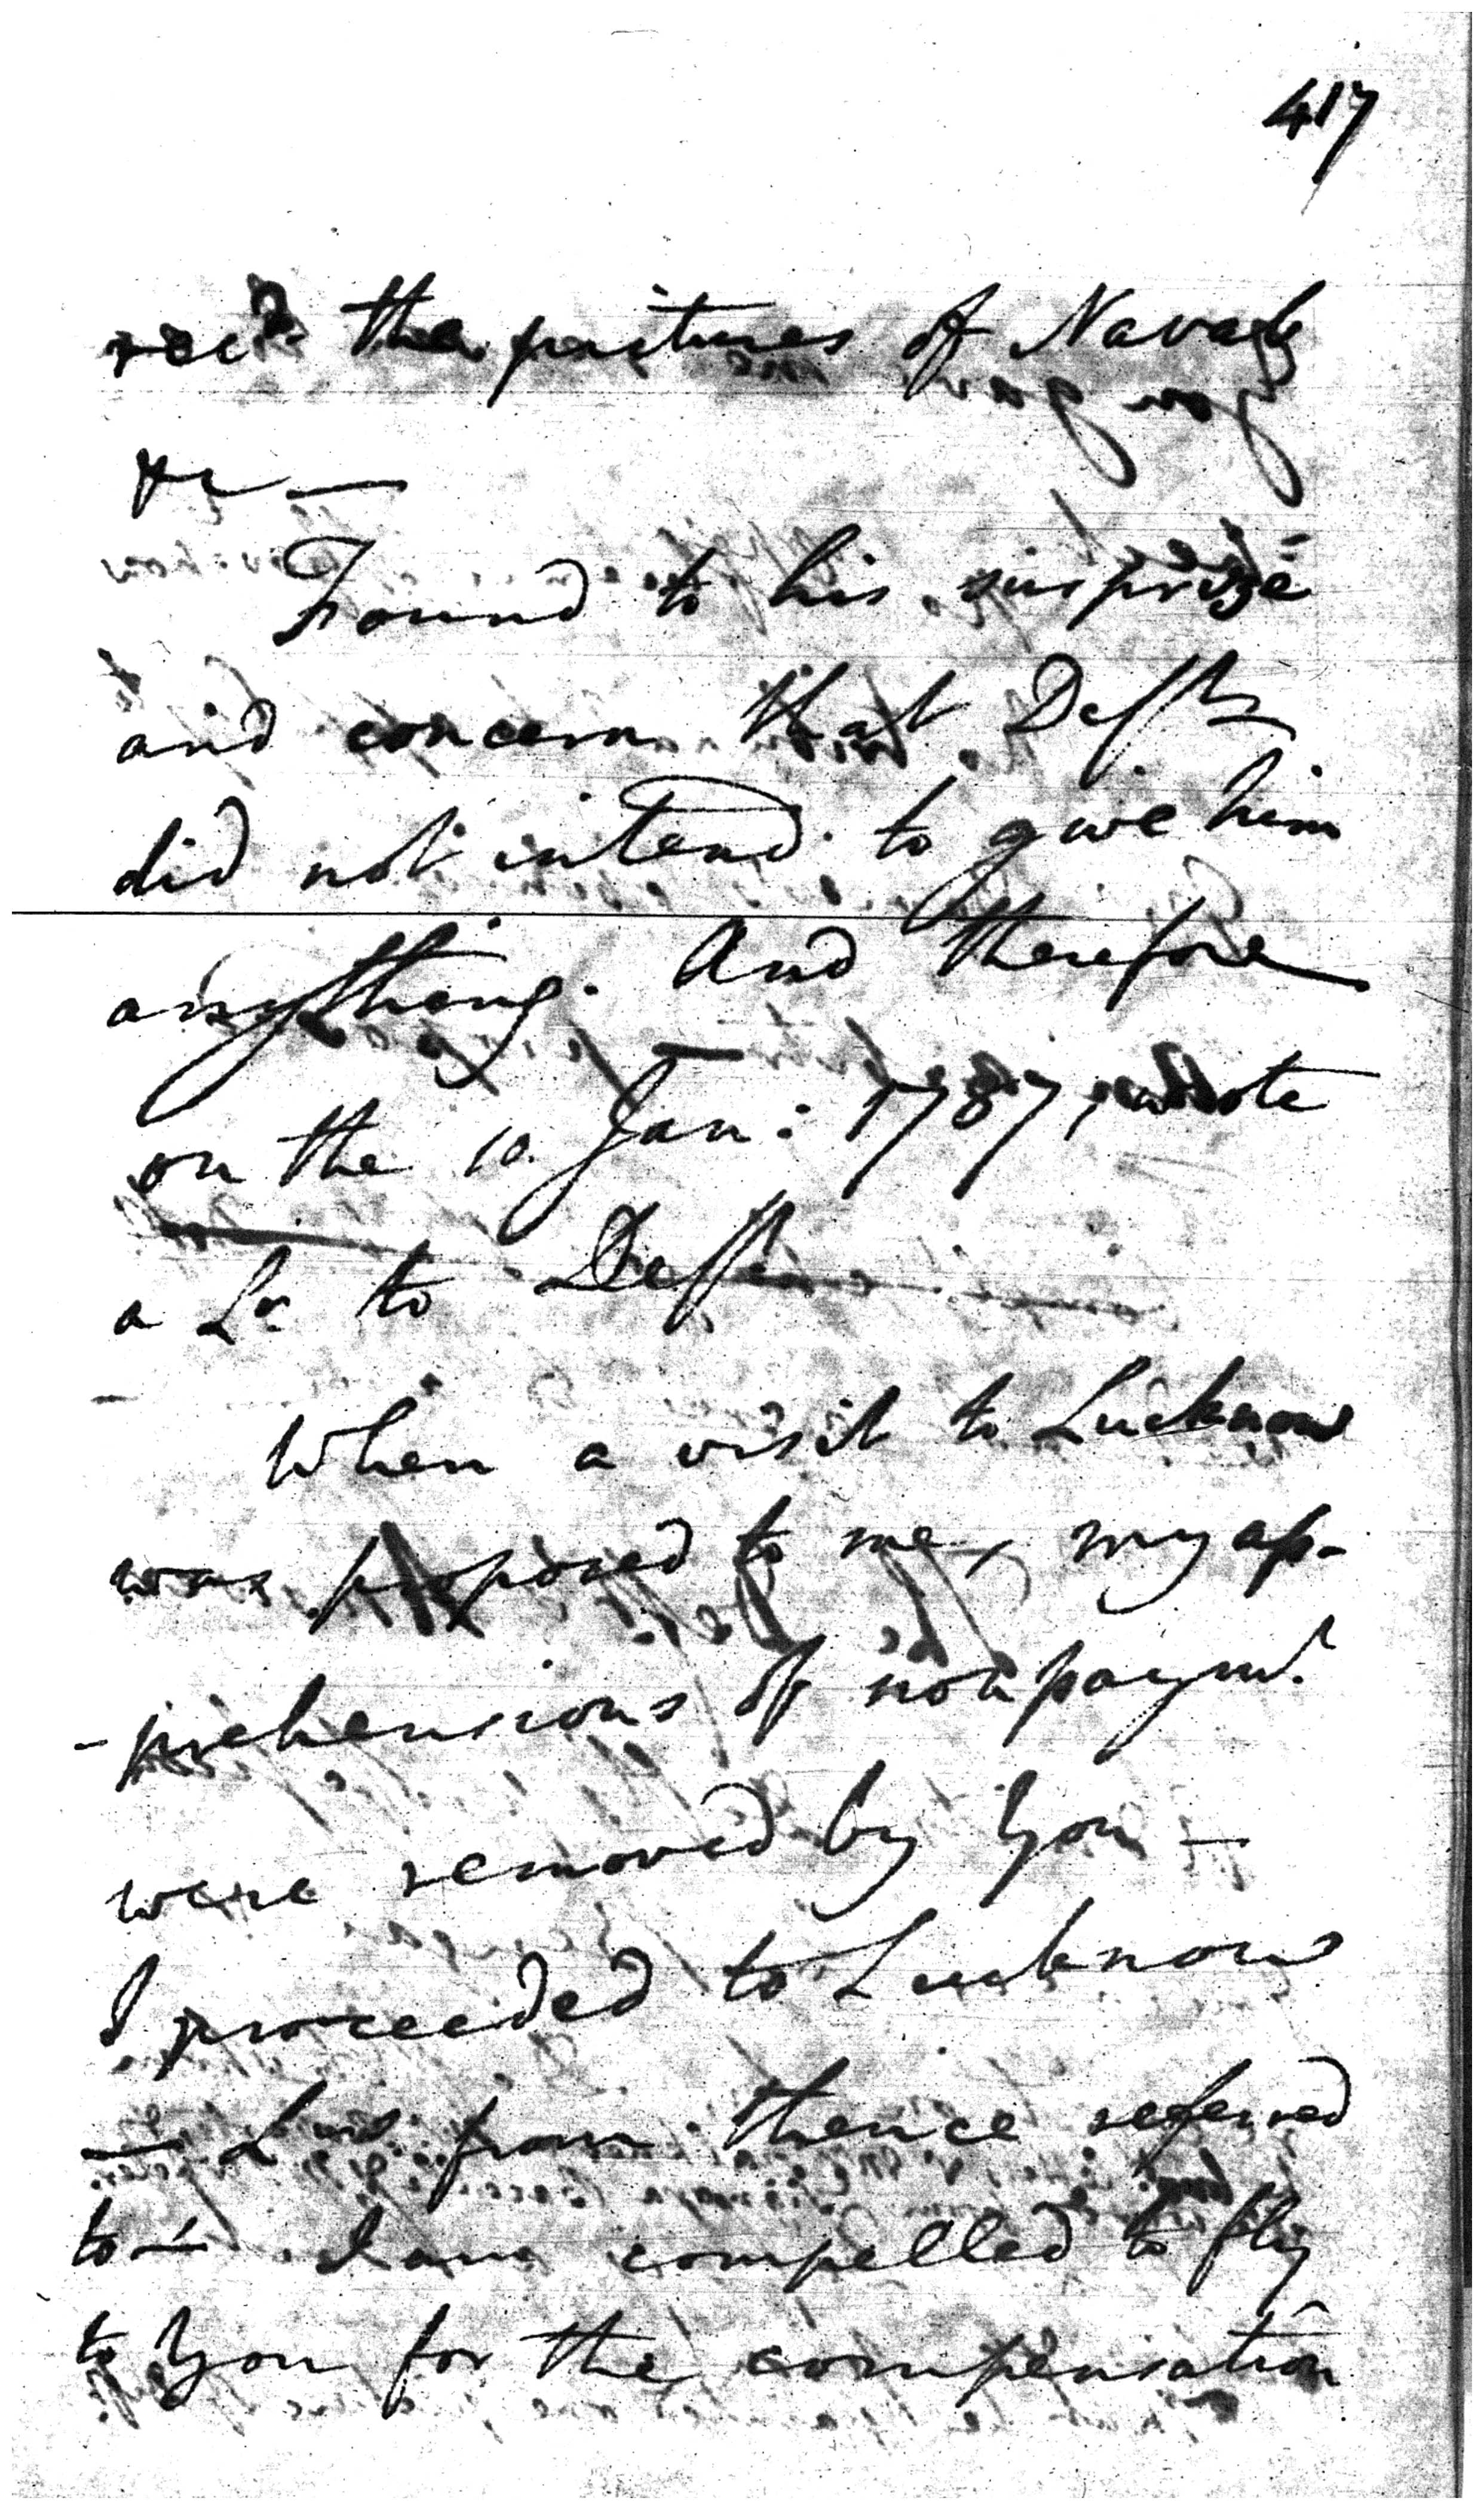 417
recd the pictures of Navab
&c —
Found to his surprize
and concern that Deft
did not intend to give him
anything. And therefore
on the 10. Jan: 1787, wrote
a Lr to Deft
When a visit to Lucknow
was proposed to me, my ap-
-prehensions of non paymt
were removed by You —
I proceeded to Lucknow
— & from thence referred
to — I am compelled to fly
to You for the compensation